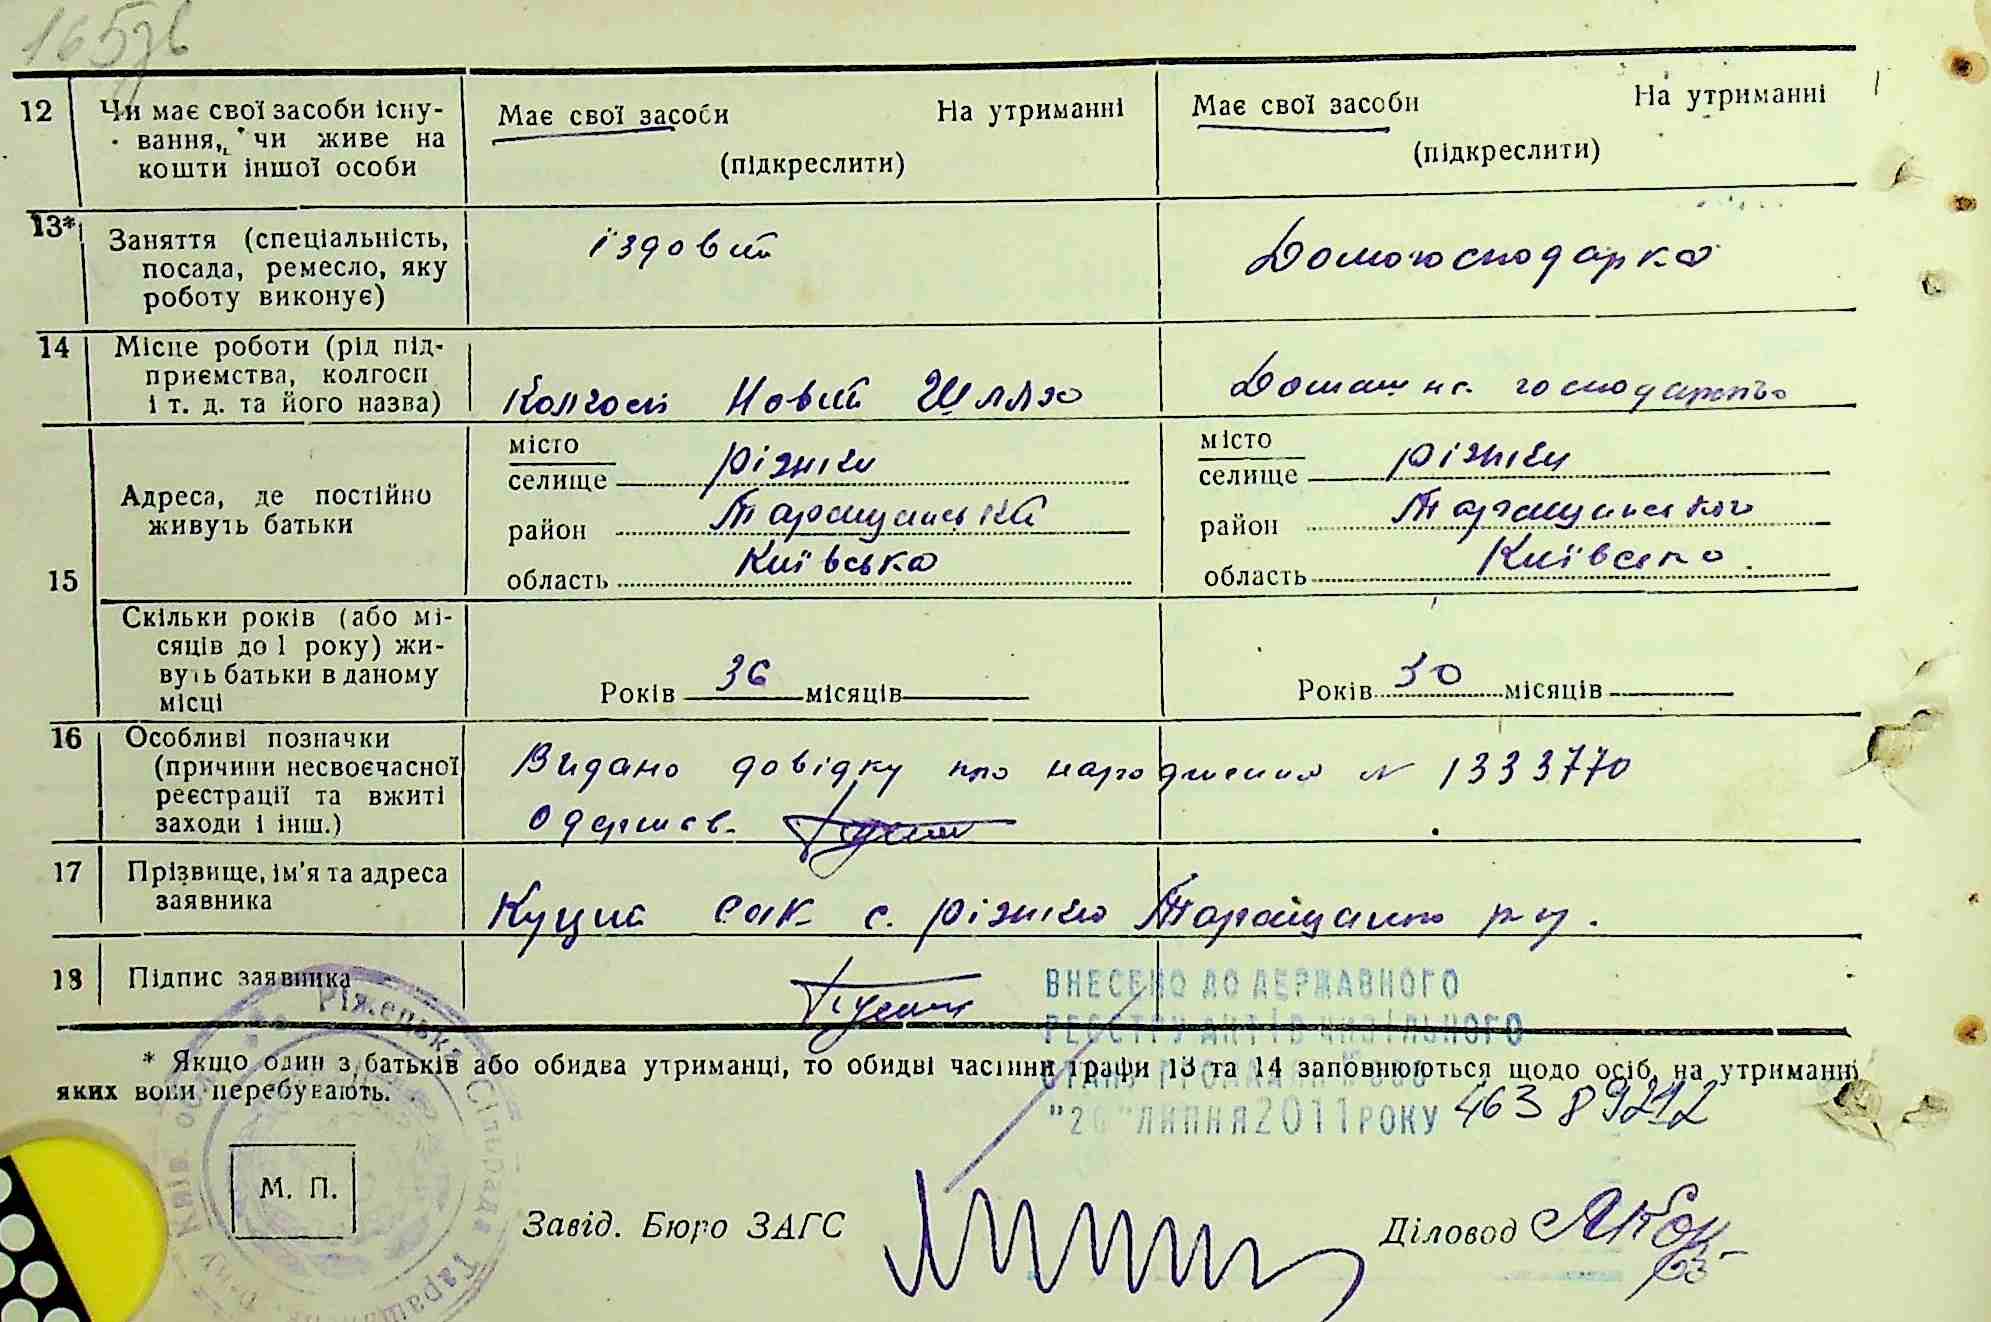 165зв
12 Чи має свої засоби існу-
вання, чи живе на
кошти іншої особи
Має свої засоби На утриманні
(підкреслити)
Має свої засоби На утриманні
(підкреслити)
13* Заняття (спеціальність,
посада, ремесло, яку
роботу виконує)
їздовий
Домогосподарка
14 Місце роботи (рід під-
приємства, колгосп
і т. д. та його назва)
Колгосп Новий Шлях
Домашнє господарство
15 Адреса, де постійно
живуть батьки
місто
селище Ріжки
район Таращанський
область Київська
місто
селище Ріжки
район Таращанського
область Київська
Скільки років (або мі-
сяців до 1 року) жи-
вуть батьки в даному
місці
Років 36 місяців
Років 30 місяців
16 Особливі позначки
(причини несвоєчасної
реєстрації та вжиті
заходи і інш.)
Видано довідку про народження № 1333770
Одержав.
17 Прізвище, ім'я та адреса
заявника
Куций с. Ріжки
18 Підпис заявника
ВНЕСЕНО ДО ДЕРЖАВНОГО
РЕЄСТРУ АКТІВ ЦИВІЛЬНОГО
СТАНУ ГРОМАДЯН
"26" ЛИПНЯ 2011 РОКУ 46389212
* Якщо один з батьків або обидва утриманці, то обидві частини графи 13 та 14 заповнюються щодо осіб, на утриманні
яких вони перебувають.
Ріжецька Сільрада Таращанськ. р-ну Київ. обл.
М. П.
Завід. Бюро ЗАГС
Діловод